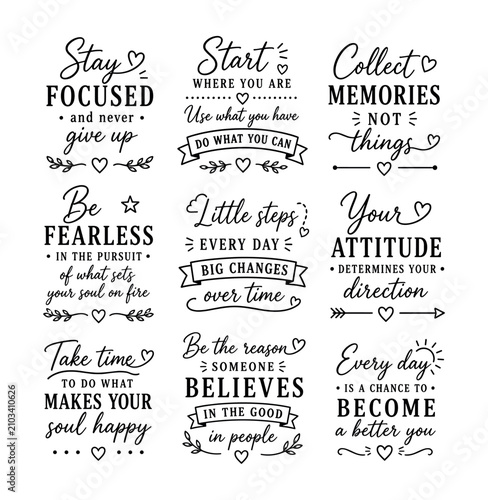 Stay
FOCUSED
and never
give up
Start
WHERE YOU ARE
Use what you have
DO WHAT YOU CAN
Collect
MEMORIES
NOT
things
Be
FEARLESS
IN THE PURSUIT
of what sets
your soul on fire
Little steps
EVERY DAY
BIG CHANGES
over time
Your
ATTITUDE
DETERMINES YOUR
direction
Take time
TO DO WHAT
MAKES YOUR
soul happy
Be the reason
SOMEONE
BELIEVES
IN THE GOOD
in people
Every day
IS A CHANCE TO
BECOME
a better you
Adobe Stock | #2103410626